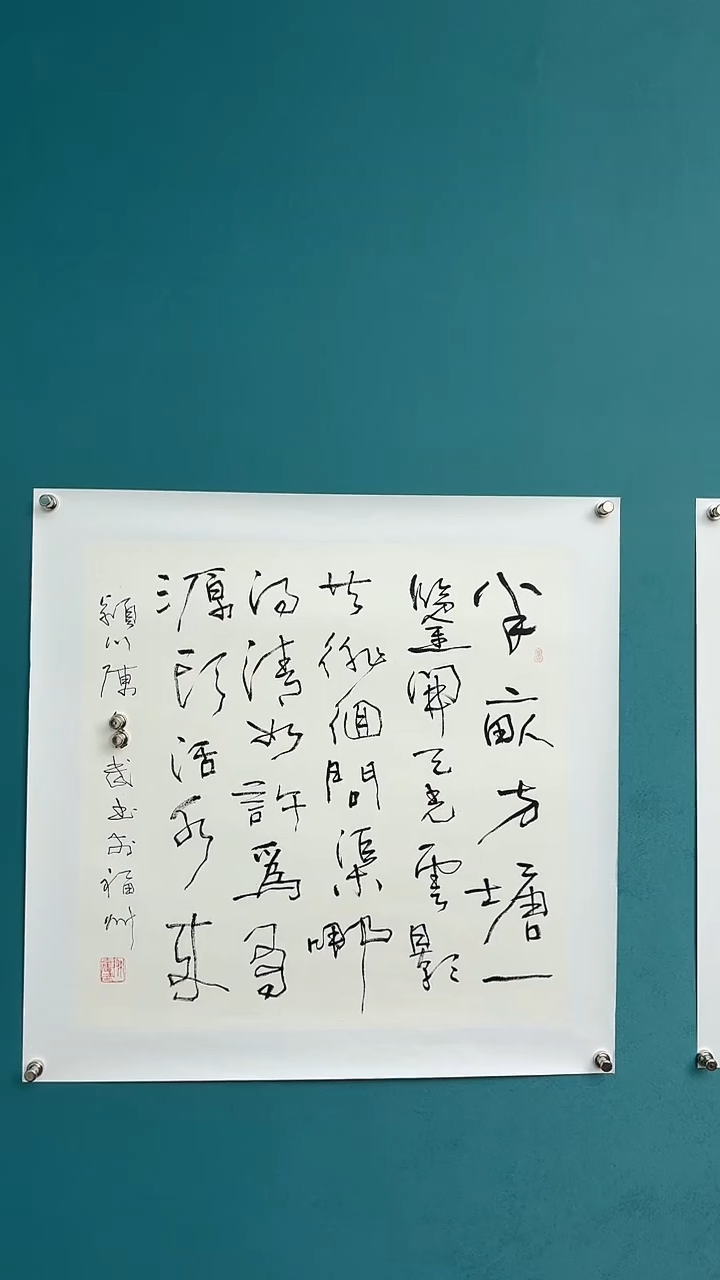 半畝方塘一
鑒開天光雲影
共徘徊問渠哪
得清如許為有
源頭活水來
潁川陳 武書於福州